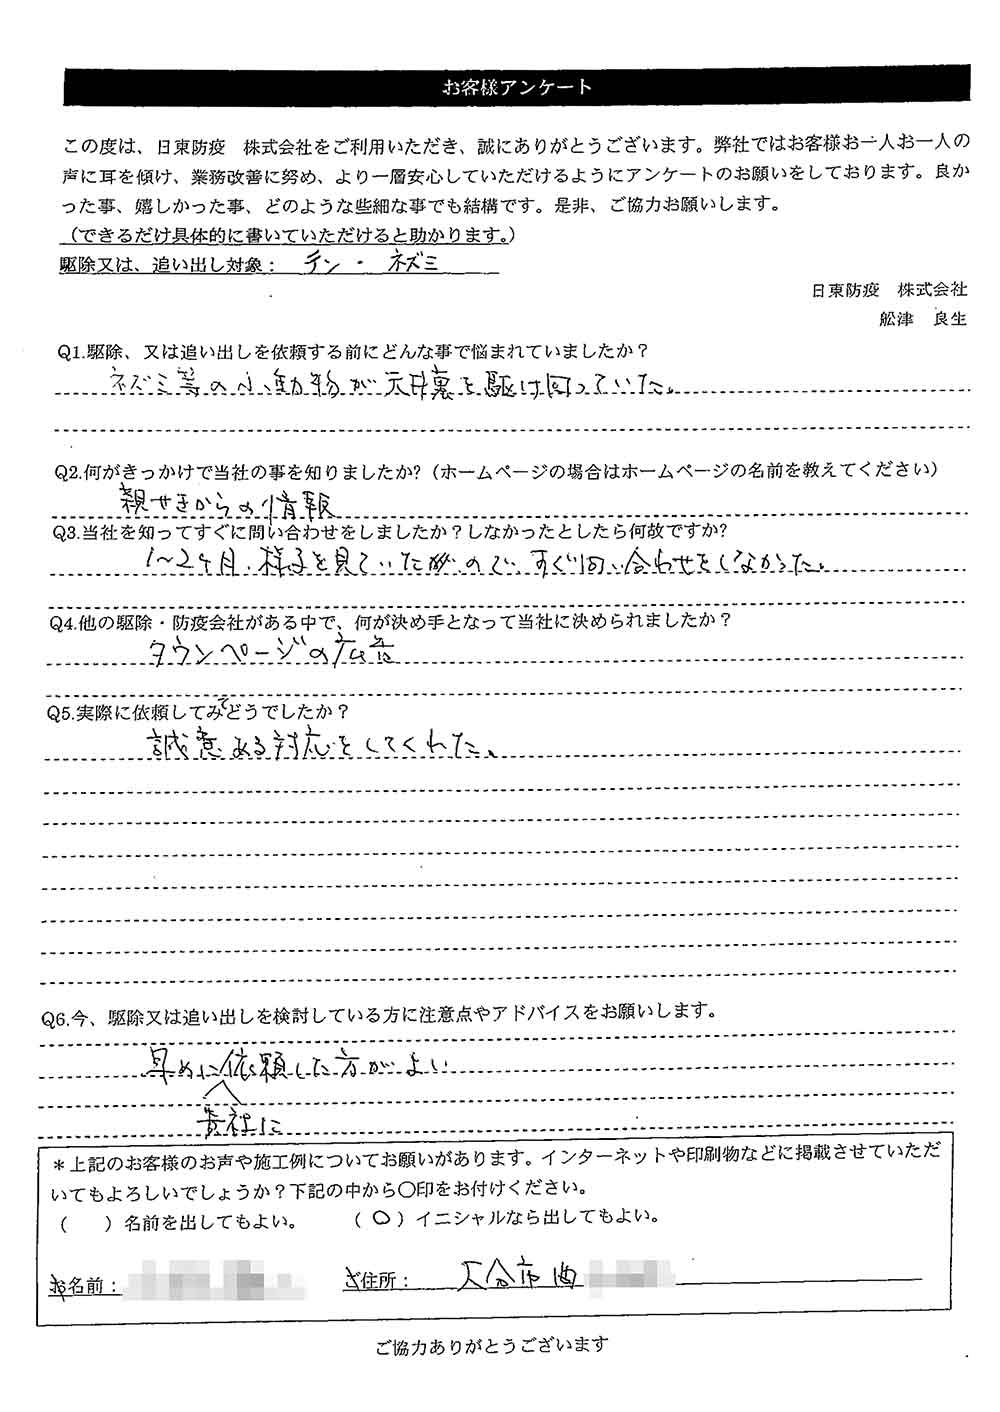 お客様アンケート
この度は、日東防疫　株式会社をご利用いただき、誠にありがとうございます。弊社ではお客様お一人お一人の
声に耳を傾け、業務改善に努め、より一層安心していただけるようにアンケートのお願いをしております。良か
った事、嬉しかった事、どのような些細な事でも結構です。是非、ご協力お願いします。
（できるだけ具体的に書いていただけると助かります。）
駆除又は、追い出し対象： テン・ネズミ
日東防疫　株式会社
舩津　良生
Q1.駆除、又は追い出しを依頼する前にどんな事で悩まれていましたか？
ネズミ等の小動物が天井裏を駆け回っていた。
Q2.何がきっかけで当社の事を知りましたか?（ホームページの場合はホームページの名前を教えてください）
親せきからの情報
Q3.当社を知ってすぐに問い合わせをしましたか？しなかったとしたら何故ですか?
1～2ヶ月、様子を見ていたので、すぐ問い合わせをしなかった。
Q4.他の駆除・防疫会社がある中で、何が決め手となって当社に決められましたか？
タウンページの広告
Q5.実際に依頼してみてどうでしたか？
誠意ある対応をしてくれた。
Q6.今、駆除又は追い出しを検討している方に注意点やアドバイスをお願いします。
早めに依頼した方がよい
貴社に
＊上記のお客様のお声や施工例についてお願いがあります。インターネットや印刷物などに掲載させていただ
いてもよろしいでしょうか？下記の中から〇印をお付けください。
（　　）名前を出してもよい。　　（ ○ ）イニシャルなら出してもよい。
お名前：　ご住所：
ご協力ありがとうございます